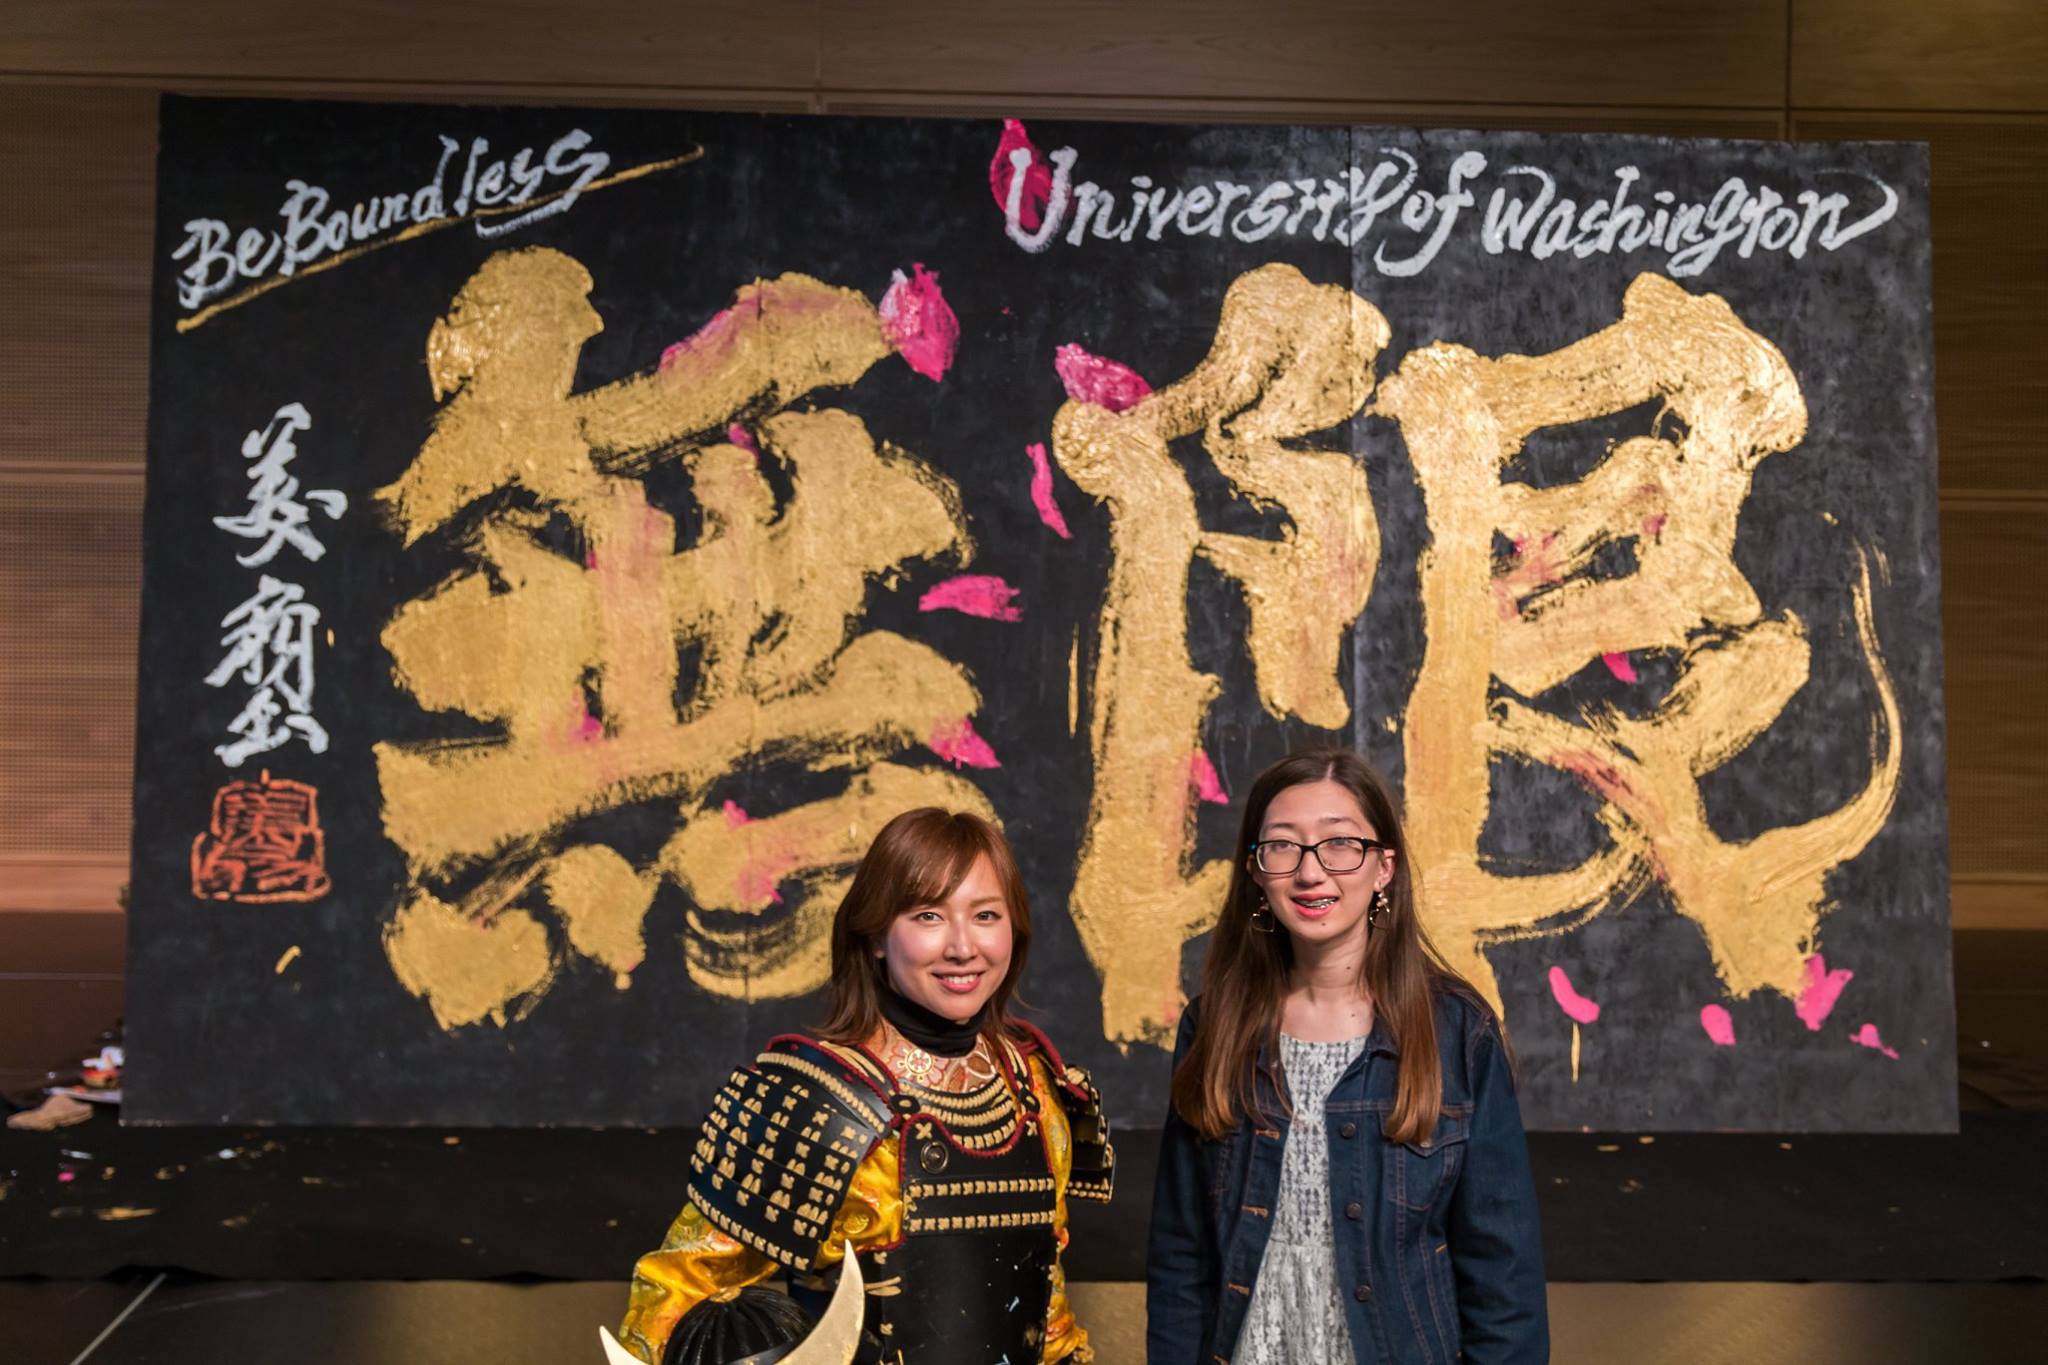 Be Boundless
University of Washington
無限
美翔